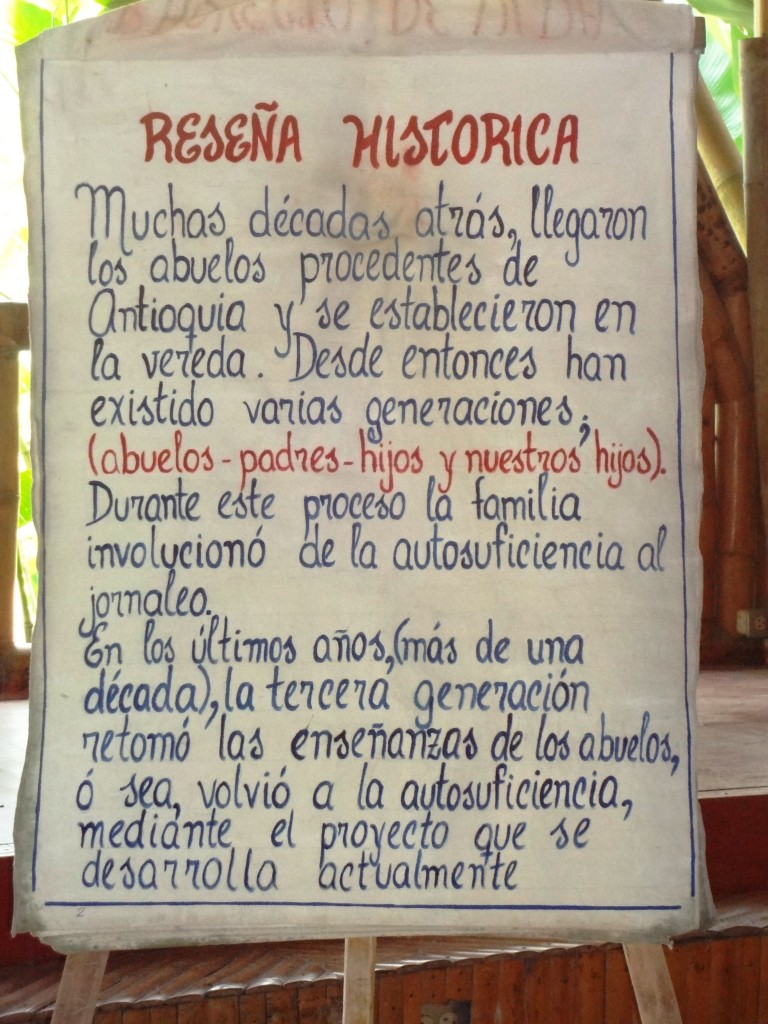 RESEÑA HISTORICA
Muchas décadas atrás, llegaron
los abuelos procedentes de
Antioquia y se establecieron en
la vereda. Desde entonces han
existido varias generaciones;
(abuelos-padres-hijos y nuestros hijos).
Durante este proceso la familia
involucionó de la autosuficiencia al
jornaleo.
En los últimos años,(más de una
década), la tercera generación
retomó las enseñanzas de los abuelos,
ó sea, volvió a la autosuficiencia,
mediante el proyecto que se
desarrolla actualmente
2